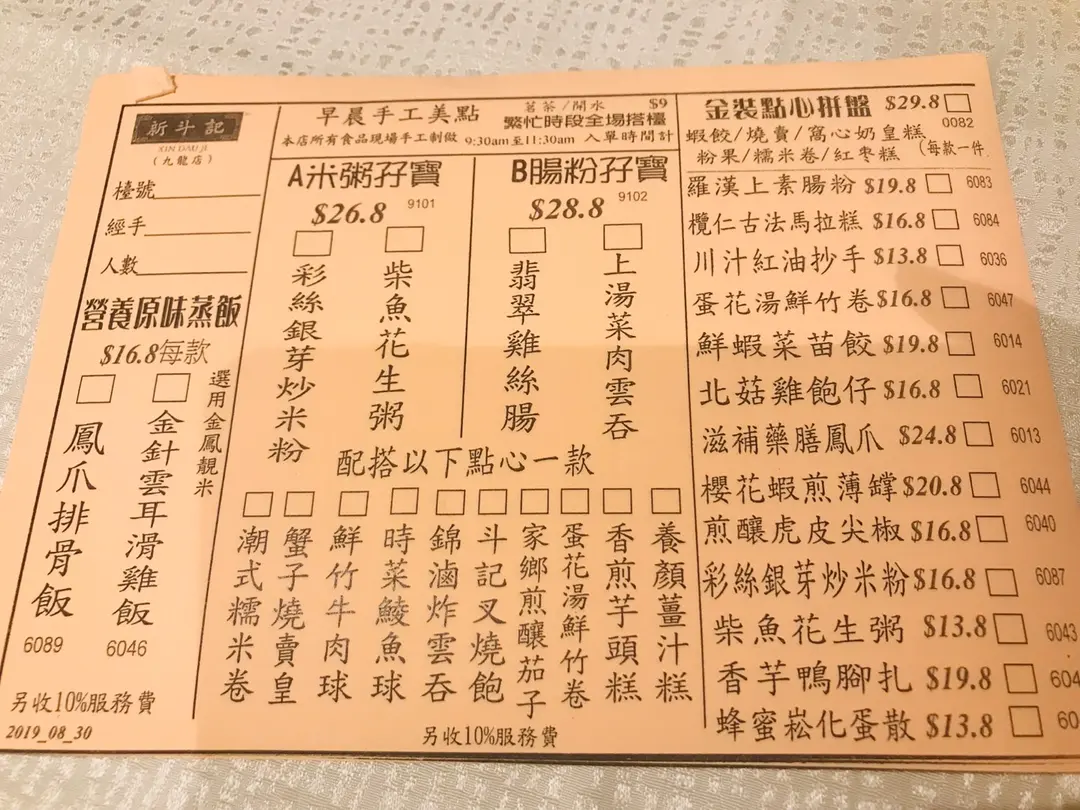 新斗記
XIN DAU JI
(九龍店)
檯號
經手
人數
營養原味蒸飯
$16.8每款
選用金鳳靚米
鳳爪排骨飯
6089
金針雲耳滑雞飯
6046
另收10%服務費
2019_08_30
早晨手工美點
茗茶/開水 $9
繁忙時段全場搭檯
本店所有食品現場手工制做 9:30am至11:30am 入單時間計
A米粥孖寶
$26.8 9101
彩絲銀芽炒米粉
柴魚花生粥
B腸粉孖寶
$28.8 9102
翡翠雞絲腸
上湯菜肉雲吞
配搭以下點心一款
潮式糯米卷
蟹子燒賣皇
鮮竹牛肉球
時菜鯪魚球
錦滷炸雲吞
斗記叉燒飽
家鄉煎釀茄子
蛋花湯鮮竹卷
香煎芋頭糕
養顏薑汁糕
另收10%服務費
金裝點心拼盤 $29.8 0082
蝦餃/燒賣/窩心奶皇糕
粉果/糯米卷/紅枣糕 (每款一件
羅漢上素腸粉 $19.8 6083
欖仁古法馬拉糕 $16.8 6084
川汁紅油抄手 $13.8 6036
蛋花湯鮮竹卷 $16.8 6047
鮮蝦菜苗餃 $19.8 6014
北菇雞飽仔 $16.8 6021
滋補藥膳鳳爪 $24.8 6013
櫻花蝦煎薄罉 $20.8 6044
煎釀虎皮尖椒 $16.8 6040
彩絲銀芽炒米粉 $16.8 6087
柴魚花生粥 $13.8 6043
香芋鴨腳扎 $19.8 604
蜂蜜崧化蛋散 $13.8 60